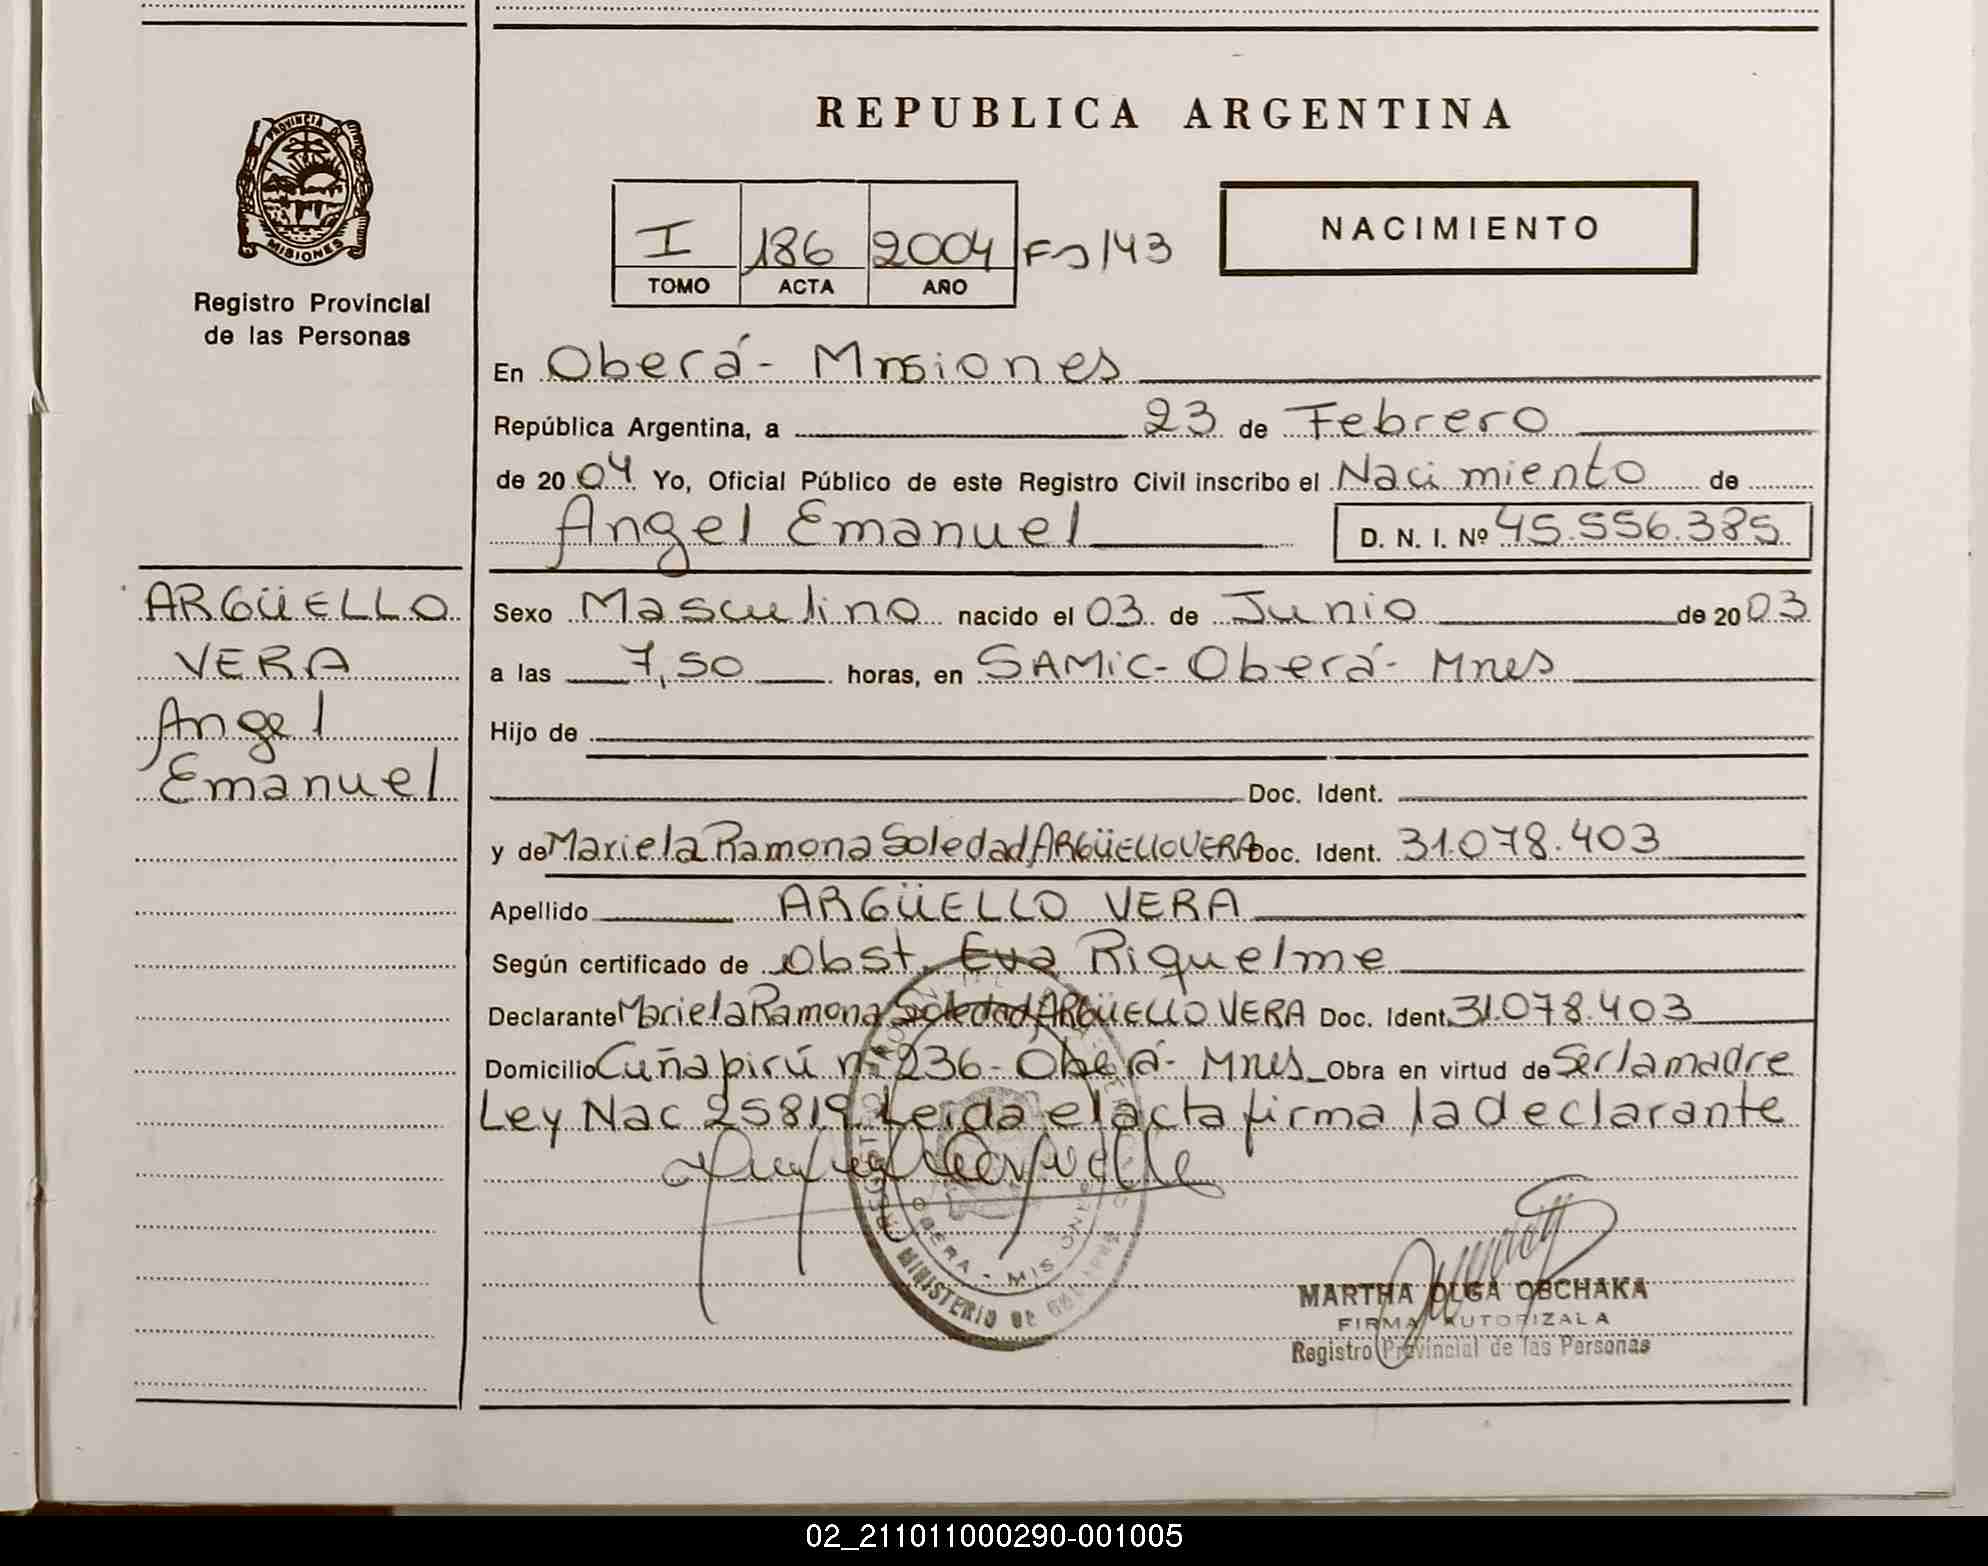 REPUBLICA ARGENTINA
PROVINCIA DE
MISIONES
Registro Provincial
de las Personas
I 186 2004 Fº 143
TOMO ACTA AÑO
NACIMIENTO
En Oberá - Misiones
República Argentina, a 23 de Febrero
de 2004 Yo, Oficial Público de este Registro Civil inscribo el Nacimiento de
Angel Emanuel D. N. I. Nº 45.556.385
ARGÜELLO
VERA
Angel
Emanuel
Sexo Masculino nacido el 03 de Junio de 2003
a las 7,50 horas, en SAMiC - Oberá - Mnes
Hijo de
Doc. Ident.
y de Mariela Ramona Soledad ARGÜELLO VERA Doc. Ident. 31.078.403
Apellido ARGÜELLO VERA
Según certificado de Obst. Eva Riquelme
Declarante Mariela Ramona Soledad ARGÜELLO VERA Doc. Ident. 31.078.403
Domicilio Cuñapirú nº 236 - Oberá - Mnes Obra en virtud de Ser la madre
Ley Nac 25819 Leida el acta firma la declarante
OBERA - MISIONES
MINISTERIO DE
MARTHA OLGA OBCHAKA
FIRMA AUTORIZALA
Registro Provincial de las Personas
02_211011000290-001005